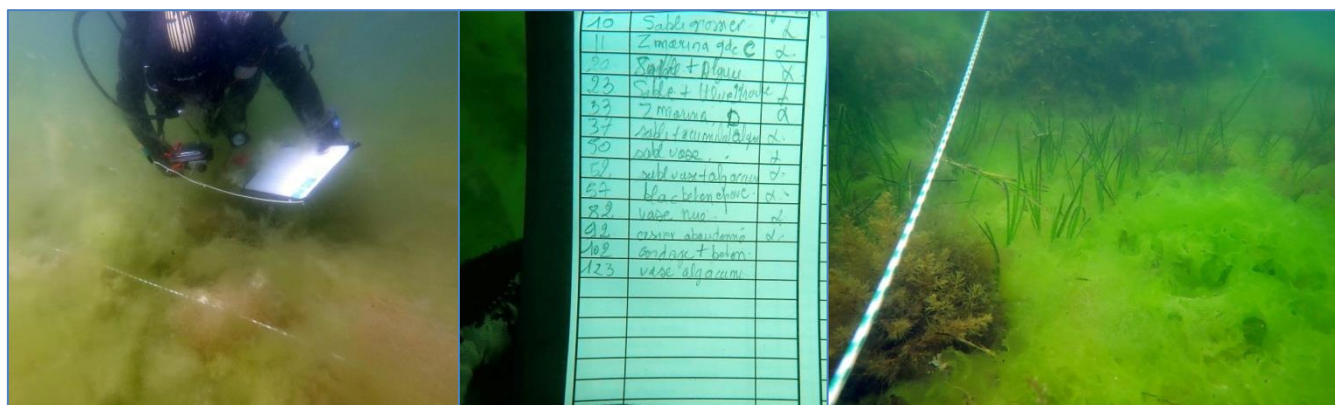 10 Sable grossier α
11 Z marina gde C α
20 Sable + Algues α
23 Sable +
33 Z marina D α
37 sable + accumul algu α
50 sabl vase
52 sabl vase + alg accum α
57 bloc beton epave α
82 vase nue α
92 casier abandonné α
102 cordage + beton
123 vase alg accum